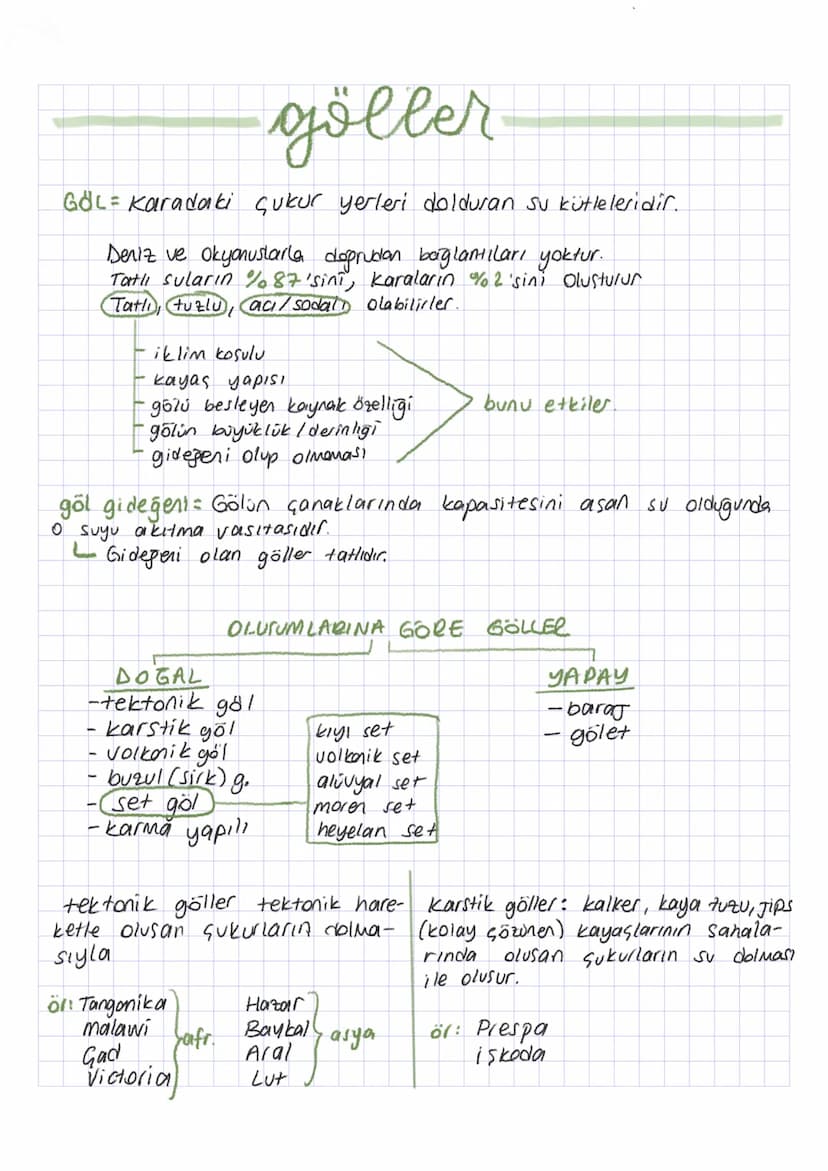 göller
GÖL= Karadaki çukur yerleri dolduran su kütleleridir.
Deniz ve Okyanuslarla doğrudan bağlantıları yoktur.
Tatlı suların %87'sini, karaların %2'sini oluşturur
Tatlı, tuzlu, acı/sodalı olabilirler.
iklim koşulu
kayaç yapısı
gölü besleyen kaynak özelliği
bunu etkiler.
gölün büyüklük / derinliği
gideğeni olup olmaması
göl gideğeni= Gölün çanaklarında kapasitesini aşan su olduğunda
o suyu akıtma vasıtasıdır.
Gideğeni olan göller tatlıdır.
OLUŞUMLARINA GÖRE GÖLLER
DOĞAL
-tektonik göl
- karstik göl
- volkanik göl
- buzul (sirk) g.
- set göl
- karma yapılı
kıyı set
volkanik set
alüvyal set
moren set
heyelan set
YAPAY
- baraj
- gölet
tektonik göller tektonik hare-
ketle oluşan çukurların dolma-
sıyla
ör: Tangonika
Malawi
Çad
Victoria
afr.
Hazar
Baykal
Aral
Lut
asya
Karstik göller: kalker, kaya tuzu, jips
(kolay çözünen) kayaçlarının sahala-
rında oluşan çukurların su dolması
ile oluşur.
ör: Prespa
işkoda